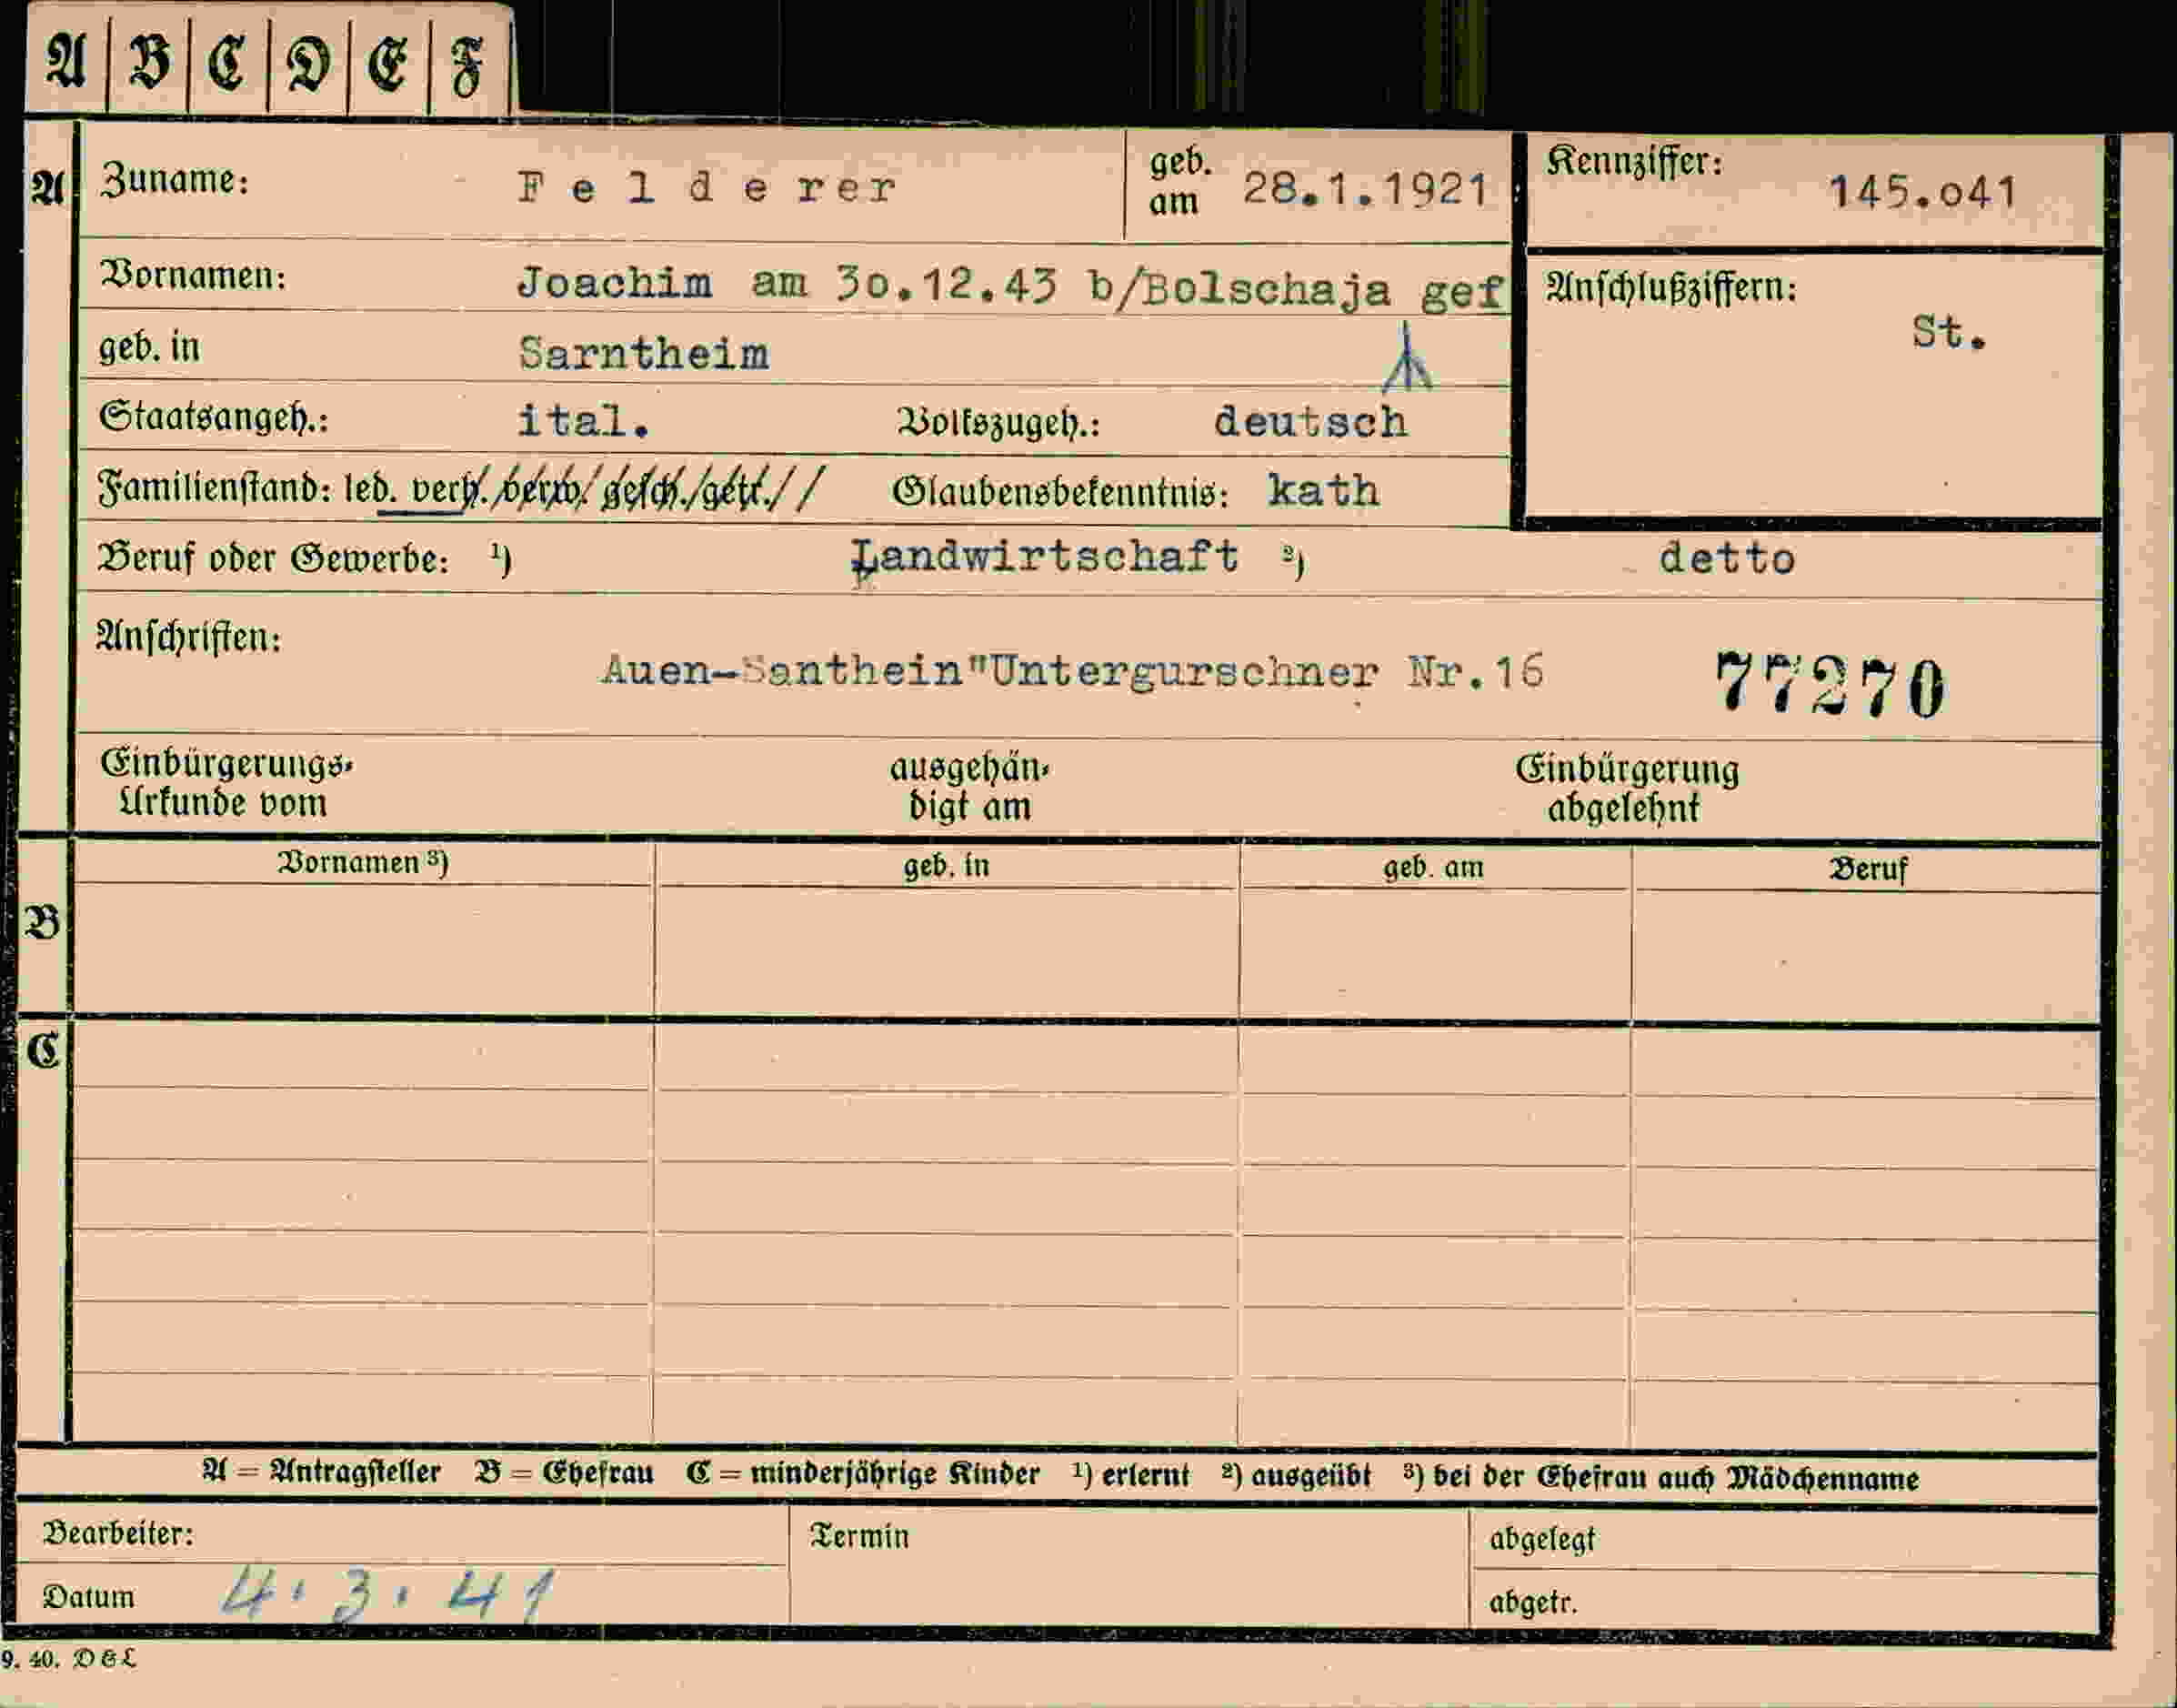 A B C D E F
A Zuname: F e l d e rer geb. am 28.1.1921 Kennziffer: 145.o41
Vornamen: Joachim am 3o.12.43 b/Bolschaja gef Anschlußziffern:
St.
geb. in Sarntheim
Staatsangeh.: ital. Volkszugeh.: deutsch
Familienstand: led. verh. verw. gesch. getr. Glaubensbekenntnis: kath
Beruf oder Gewerbe: ¹) Landwirtschaft ²) detto
Anschriften:
Auen-Santhein"Untergurschner Nr.16 77270
Einbürgerungs- ausgehän- Einbürgerung
Urkunde vom digt am abgelehnt
Vornamen ³) geb. in geb. am Beruf
B
C
A = Antragsteller B = Ehefrau C = minderjährige Kinder ¹) erlernt ²) ausgeübt ³) bei der Ehefrau auch Mädchenname
Bearbeiter: Termin abgelegt
Datum 4.3.41 abgetr.
9. 40. D & L